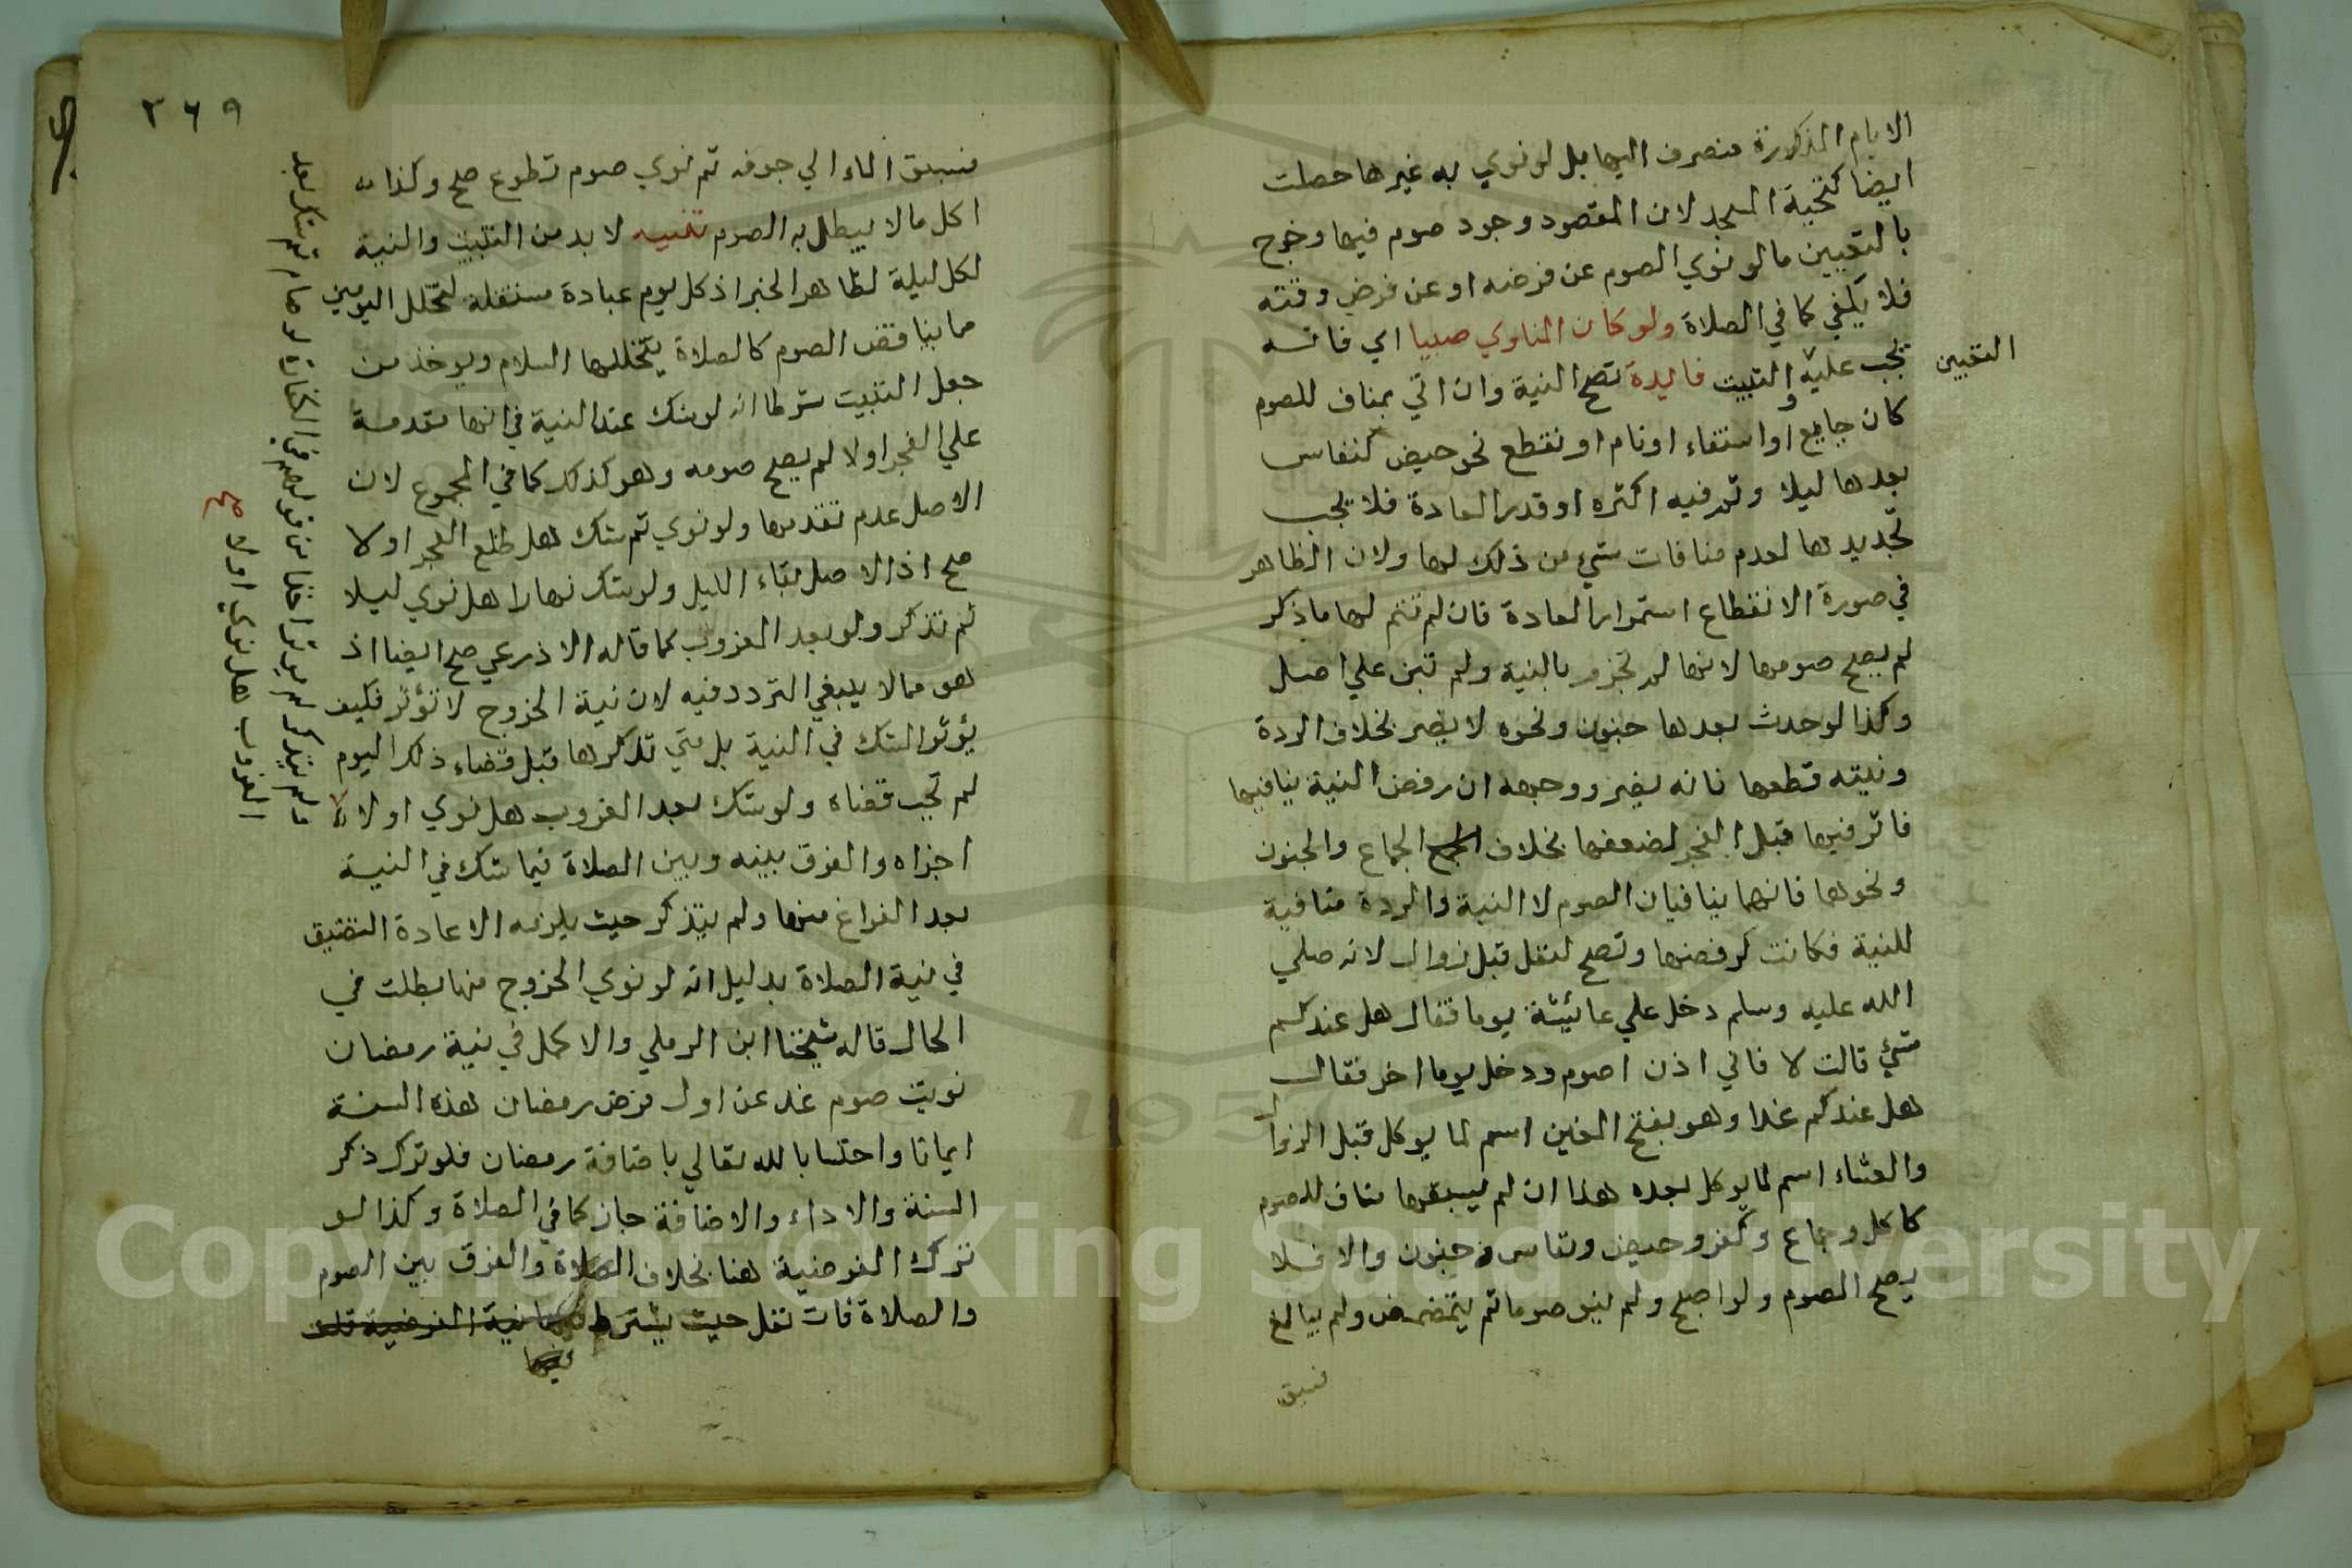 الايام المذكورة منصرف اليها بل لو نوي به غيرها حصلت
ايضا كتحية المسجد لان المقصود وجود صوم فيها وخرج
بالتعيين ما لو نوي الصوم عن فرضه او عن فرض وقته
فلا يكفي كما في الصلاة ولو كان الناوي صبيا اي فانه
تجب عليه والتبيت فايدة تصح النية وان اتي بمناف للصوم
التعيين
كان جامع او استقاء او نام او نقطع نحو حيض كنفاس
بعدها ليلا وتم فيه اكثره او قدر العادة فلا يجب
تجديدها لعدم منافات شيء من ذلك لها ولان الظاهر
في صورة الانقطاع استمرار العادة فان لم تتم لها ما ذكر
لم يصح صومها لانها لم تجزم بالنية ولم تبن علي اصل
وكذا لو حدث بعدها جنون ونحوه لا يضر بخلاف الردة
ونيته قطعها فانه يضر ووجهه ان رفض النية ينافيها
فاثر فيها قبل الفجر لضعفها بخلاف الجماع والجنون
ونحوها فانهما ينافيان الصوم لا النية والردة منافية
للنية فكانت كرفضها وتصح لنفل قبل زوال لانه صلي
الله عليه وسلم دخل علي عائيشة يوما فقال هل عندكم
شيء قالت لا فاني اذن اصوم ودخل يوما اخر فقال
هل عندكم غدا وهو بفتح الغين اسم لما يوكل قبل الزوال
والعشاء اسم لما يوكل بعده هذا ان لم يسبقها مناف للصوم
كاكل وجماع وكفر وحيض ونفاس وجنون والا فلا
يصح الصوم ولو اصبح ولم ينو صوما ثم يتمضمض ولم يبالغ
فسبق
٣٦٩
فسبق الماء الي جوفه ثم نوي صوم تطوع صح وكذا
اكل مالا يبطل به الصوم تنبيه لا بد من التبييت والنية
لكل ليلة لظاهر الخبر اذ كل يوم عبادة مستقلة لتخلل اليومين
مما يناقض الصوم كالصلاة يتخللها السلام ويوخذ من
جعل التبييت شرطا انه لو شك عند النية في انها متقدمة
علي الفجر اولا لم يصح صومه وهو كذلك كما في المجموع لان
الاصل عدم تقدمها ولو نوي ثم شك هل طلع الفجر اولا
صح اذ الاصل بقاء الليل ولو شك نهارا هل نوي ليلا
ثم تذكر ولو بعد الغروب كما قاله الاذرعي صح ايضا اذ
هو مما لا ينبغي التردد فيه لان نية الخروج لا تؤثر فكيف
يؤثر الشك في النية بل متي تذكرها قبل قضاء ذلك اليوم
لم تجب قضاه ولو شك بعد الغروب هل نوي اولا
اجزاه والفرق بينه وبين الصلاة فيما شك في النية
بعد الفراغ منها ولم يتذكر حيث يلزمه الاعادة التضيق
في نية الصلاة بدليل انه لو نوي الخروج منها بطلت في
الحال قاله شيخنا ابن الرملي والاكمل في نية رمضان
نويت صوم غد عن اول فرض رمضان هذه السنة
ايمانا واحتسابا لله تعالي باضافة رمضان فلو ترك ذكر
السنة والاداء والاضافة جاز كما في الصلاة وكذا لو
ترك الفرضية هنا بخلاف الصلاة والفرق بين الصوم
والصلاة فات نفل حيث يشترط فيها نية الفرضية
فيها
الغروب هل نوي اولا صح
Copyright © King Saud University
1957